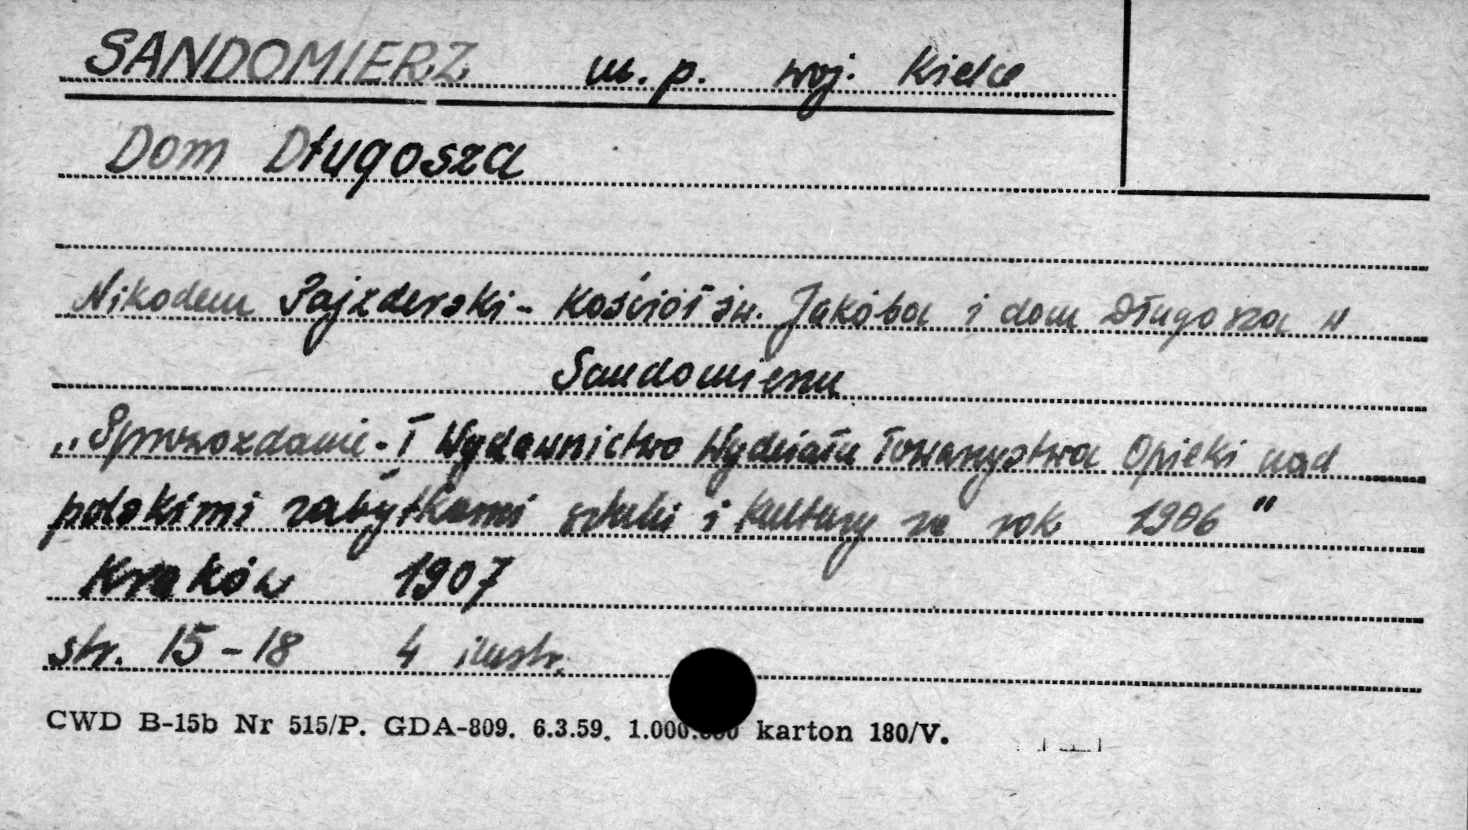 SANDOMIERZ m. p. woj. Kielce
Dom Długosza
Nikodem Pajzderski - Kościół św. Jakóba i dom Długosza w
Sandomierzu
„Sprawozdanie - I Wydawnictwo Wydziału Towarzystwa Opieki nad
polskimi zabytkami sztuki i kultury za rok 1906"
Kraków 1907
str. 15-18 4 ilustr.
CWD B-15b Nr 515/P. GDA-809. 6.3.59. 1.000.000 karton 180/V.